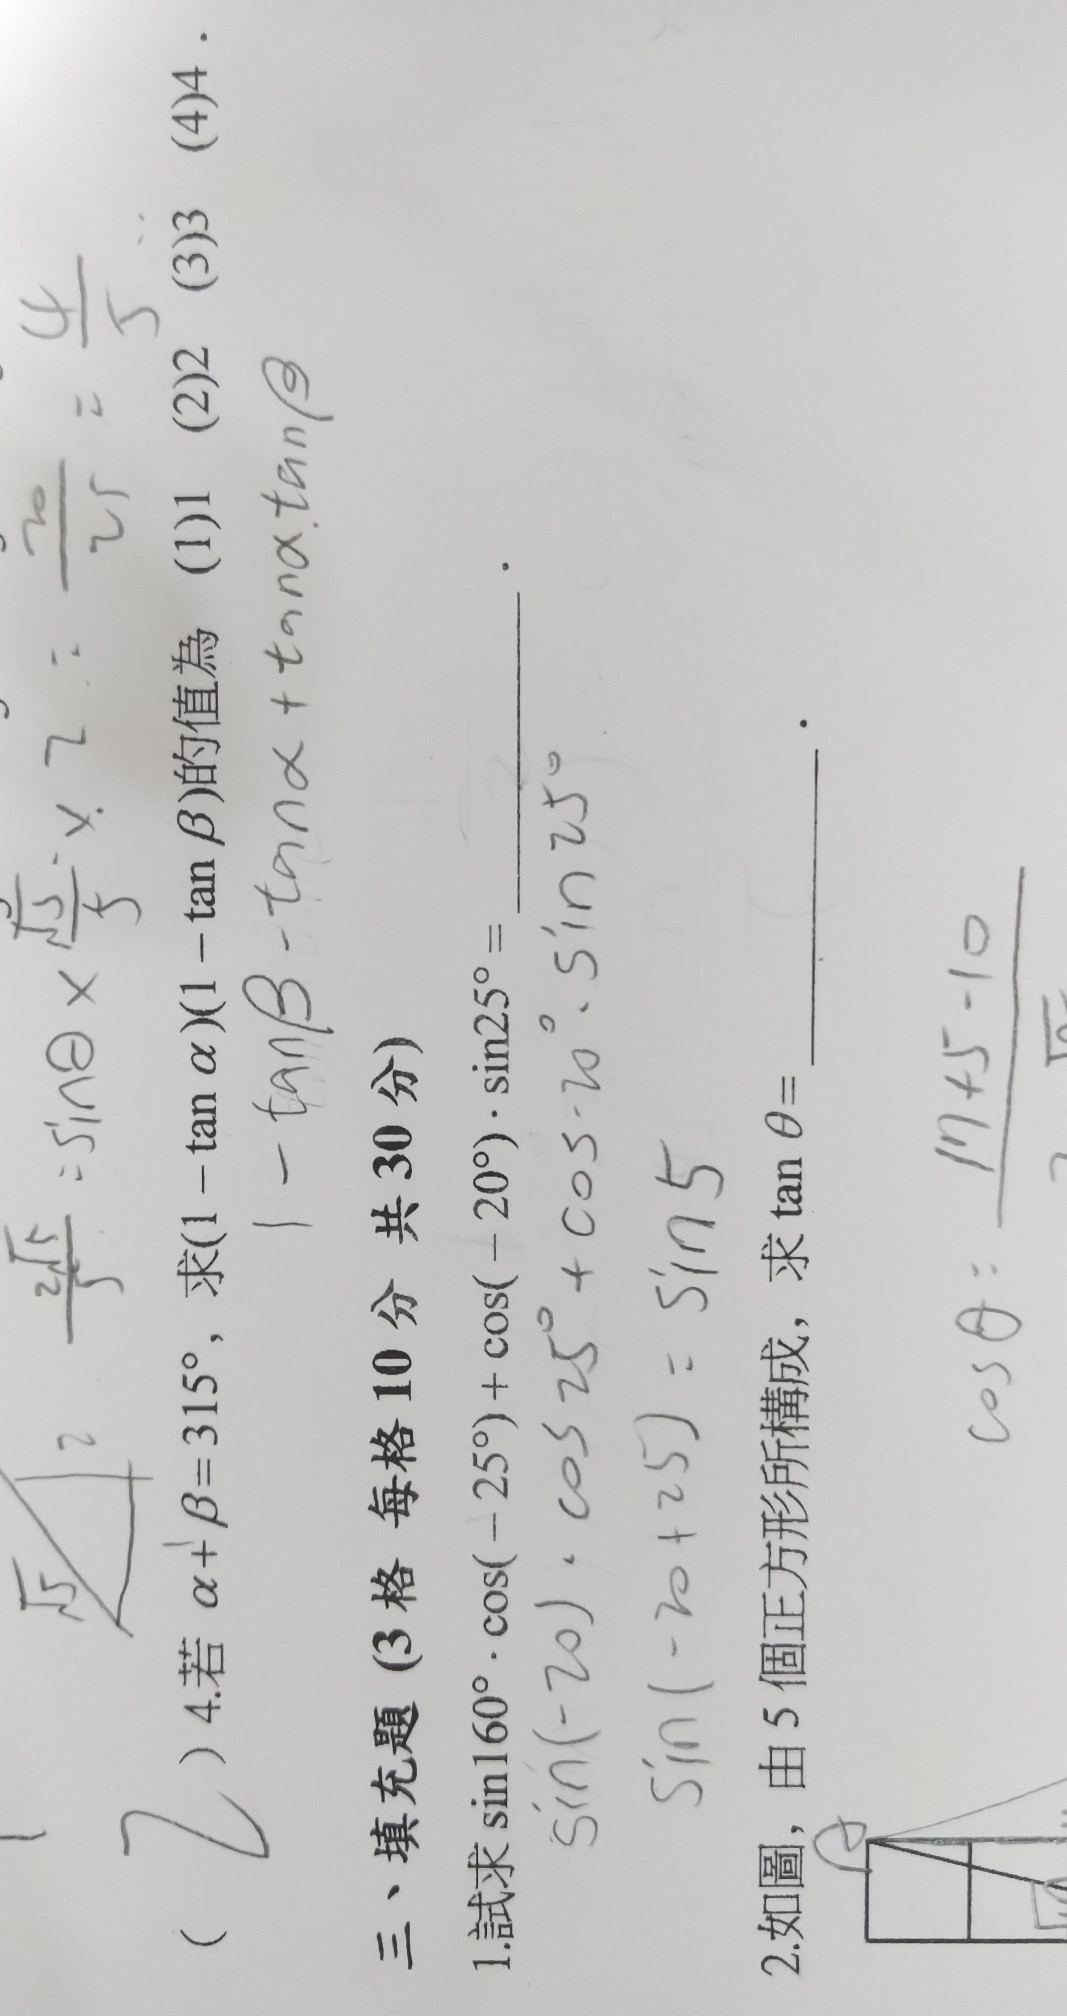 2√5/5 = sinθ × √5/5 × 2 = 20/25 = 4/5
√5
2
2
( ) 4.若 α+β=315°，求(1－tan α)(1－tan β)的值為 (1)1 (2)2 (3)3 (4)4．
1 - tanβ - tanα + tanα.tanβ
三、填充題 (3 格 每格 10 分 共 30 分)
1.試求 sin160°．cos(－25°)＋cos(－20°)．sin25°＝ ．
sin(-20)．cos25° + cos-20°．sin25°
sin(-20+25) = sin5
2.如圖，由 5 個正方形所構成，求 tan θ＝ ．
cosθ =